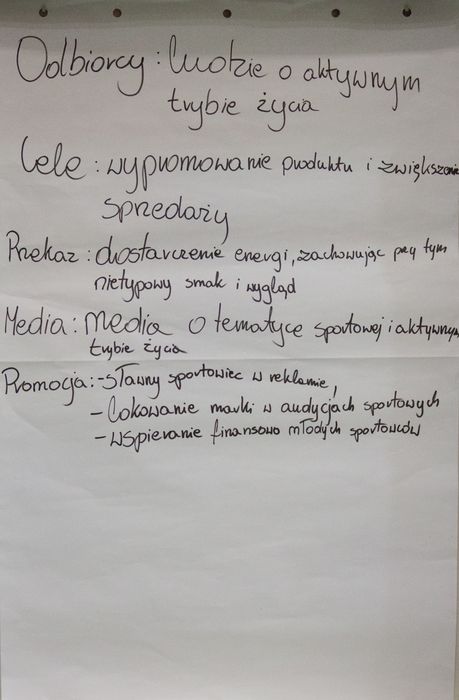 Odbiorcy: ludzie o aktywnym
trybie życia
Cele: wypromowanie produktu i zwiększenie
sprzedaży
Przekaz: dostarczenie energi, zachowując przy tym
nietypowy smak i wygląd
Media: media o tematyce sportowej i aktywnym
trybie życia
Promocja: -sławny sportowiec w reklamie,
- lokowanie marki w audycjach sportowych
- wspieranie finansowo młodych sportowców